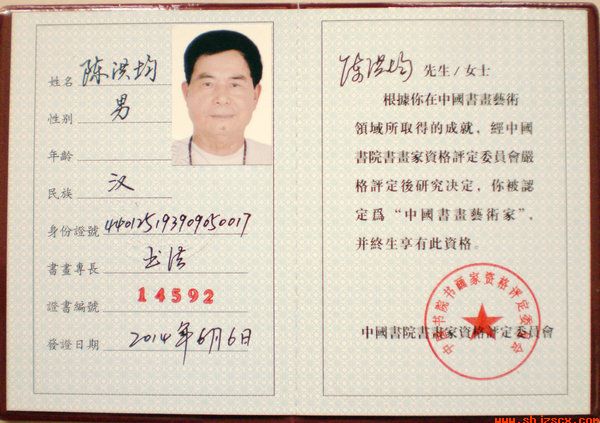 姓名 陈洪均
性别 男
年齡
民族 汉
身份證號 440125193909050017
書畫專長 书法
證書編號 14592
發證日期 2014年6月6日
陈洪均 先生/女士
根據你在中國書畫藝術
領域所取得的成就，經中國
書院書畫家資格評定委員會嚴
格評定後研究決定，你被認
定爲“中國書畫藝術家”，
并終生享有此資格。
中國書院書畫家資格評定委員會
中国书院书画家资格评定委员会
www.shjzscx.com